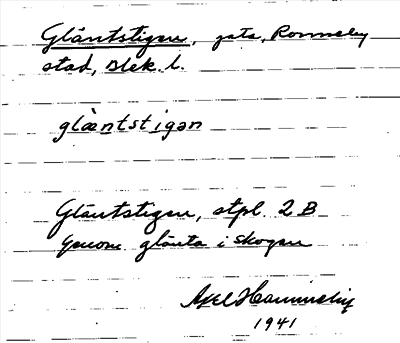 Gläntstigen, gata, Ronneby
stad, Blek. l.
glæ̀ntstigən
Gläntstigen, stpl. 2 B
Genom glänta i skogen
Axel
1941